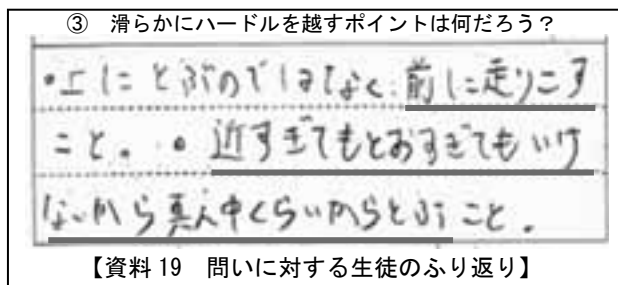 ③ 滑らかにハードルを越すポイントは何だろう？
・上にとぶのではなく.前に走りこす
こと。・近すぎてもとおすぎてもいけ
ないから真ん中くらいからとぶこと。
【資料 19 問いに対する生徒のふり返り】